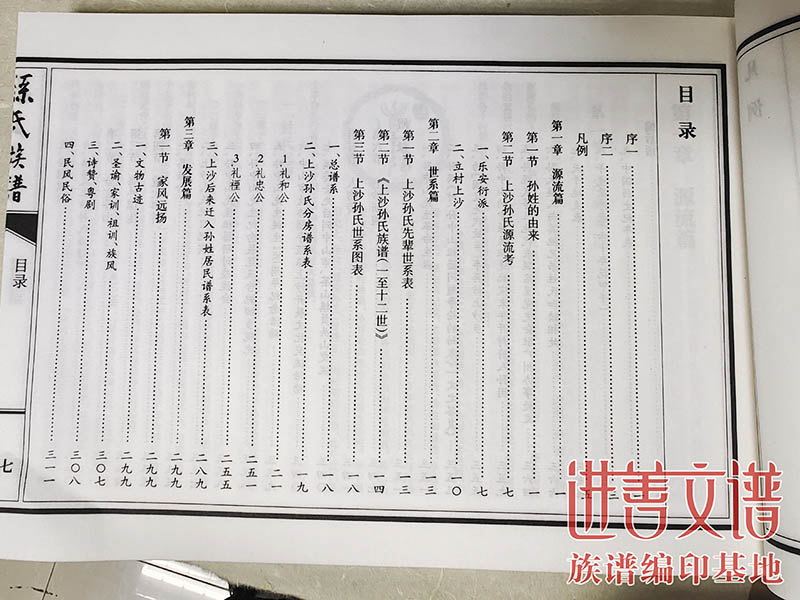 目录
序一
序二
凡例
第一章 源流篇 一
第一节 孙姓的由来 一
第二节 上沙孙氏源流考 七
一、乐安衍派 七
二、立村上沙 一〇
第二章 世系篇 一三
第一节 上沙孙氏先辈世系表 一三
第二节 《上沙孙氏族谱(一至十二世)》 一四
第三节 上沙孙氏世系图表 一八
一、总谱系 一八
二、上沙孙氏分房谱系表 一九
1礼和公 二一
2礼忠公 二五一
3礼禋公 二五五
三、上沙后来迁入孙姓居民谱系表 二八九
第三章 发展篇 二九九
第一节 家风远扬 二九九
一、文物古迹 二九九
二、圣谕、家训、祖训、族风 二九九
三、诗赞、粤剧 三〇七
四、民风民俗 三〇八
三一一
孫氏族譜
目录
七
凡例
进善文谱
族谱编印基地